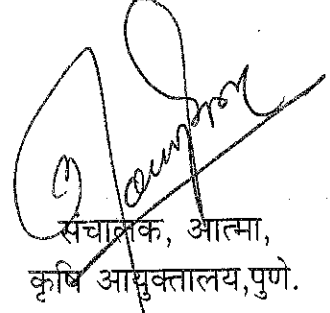 संचालक, आत्मा,
कृषि आयुक्तालय,पुणे.